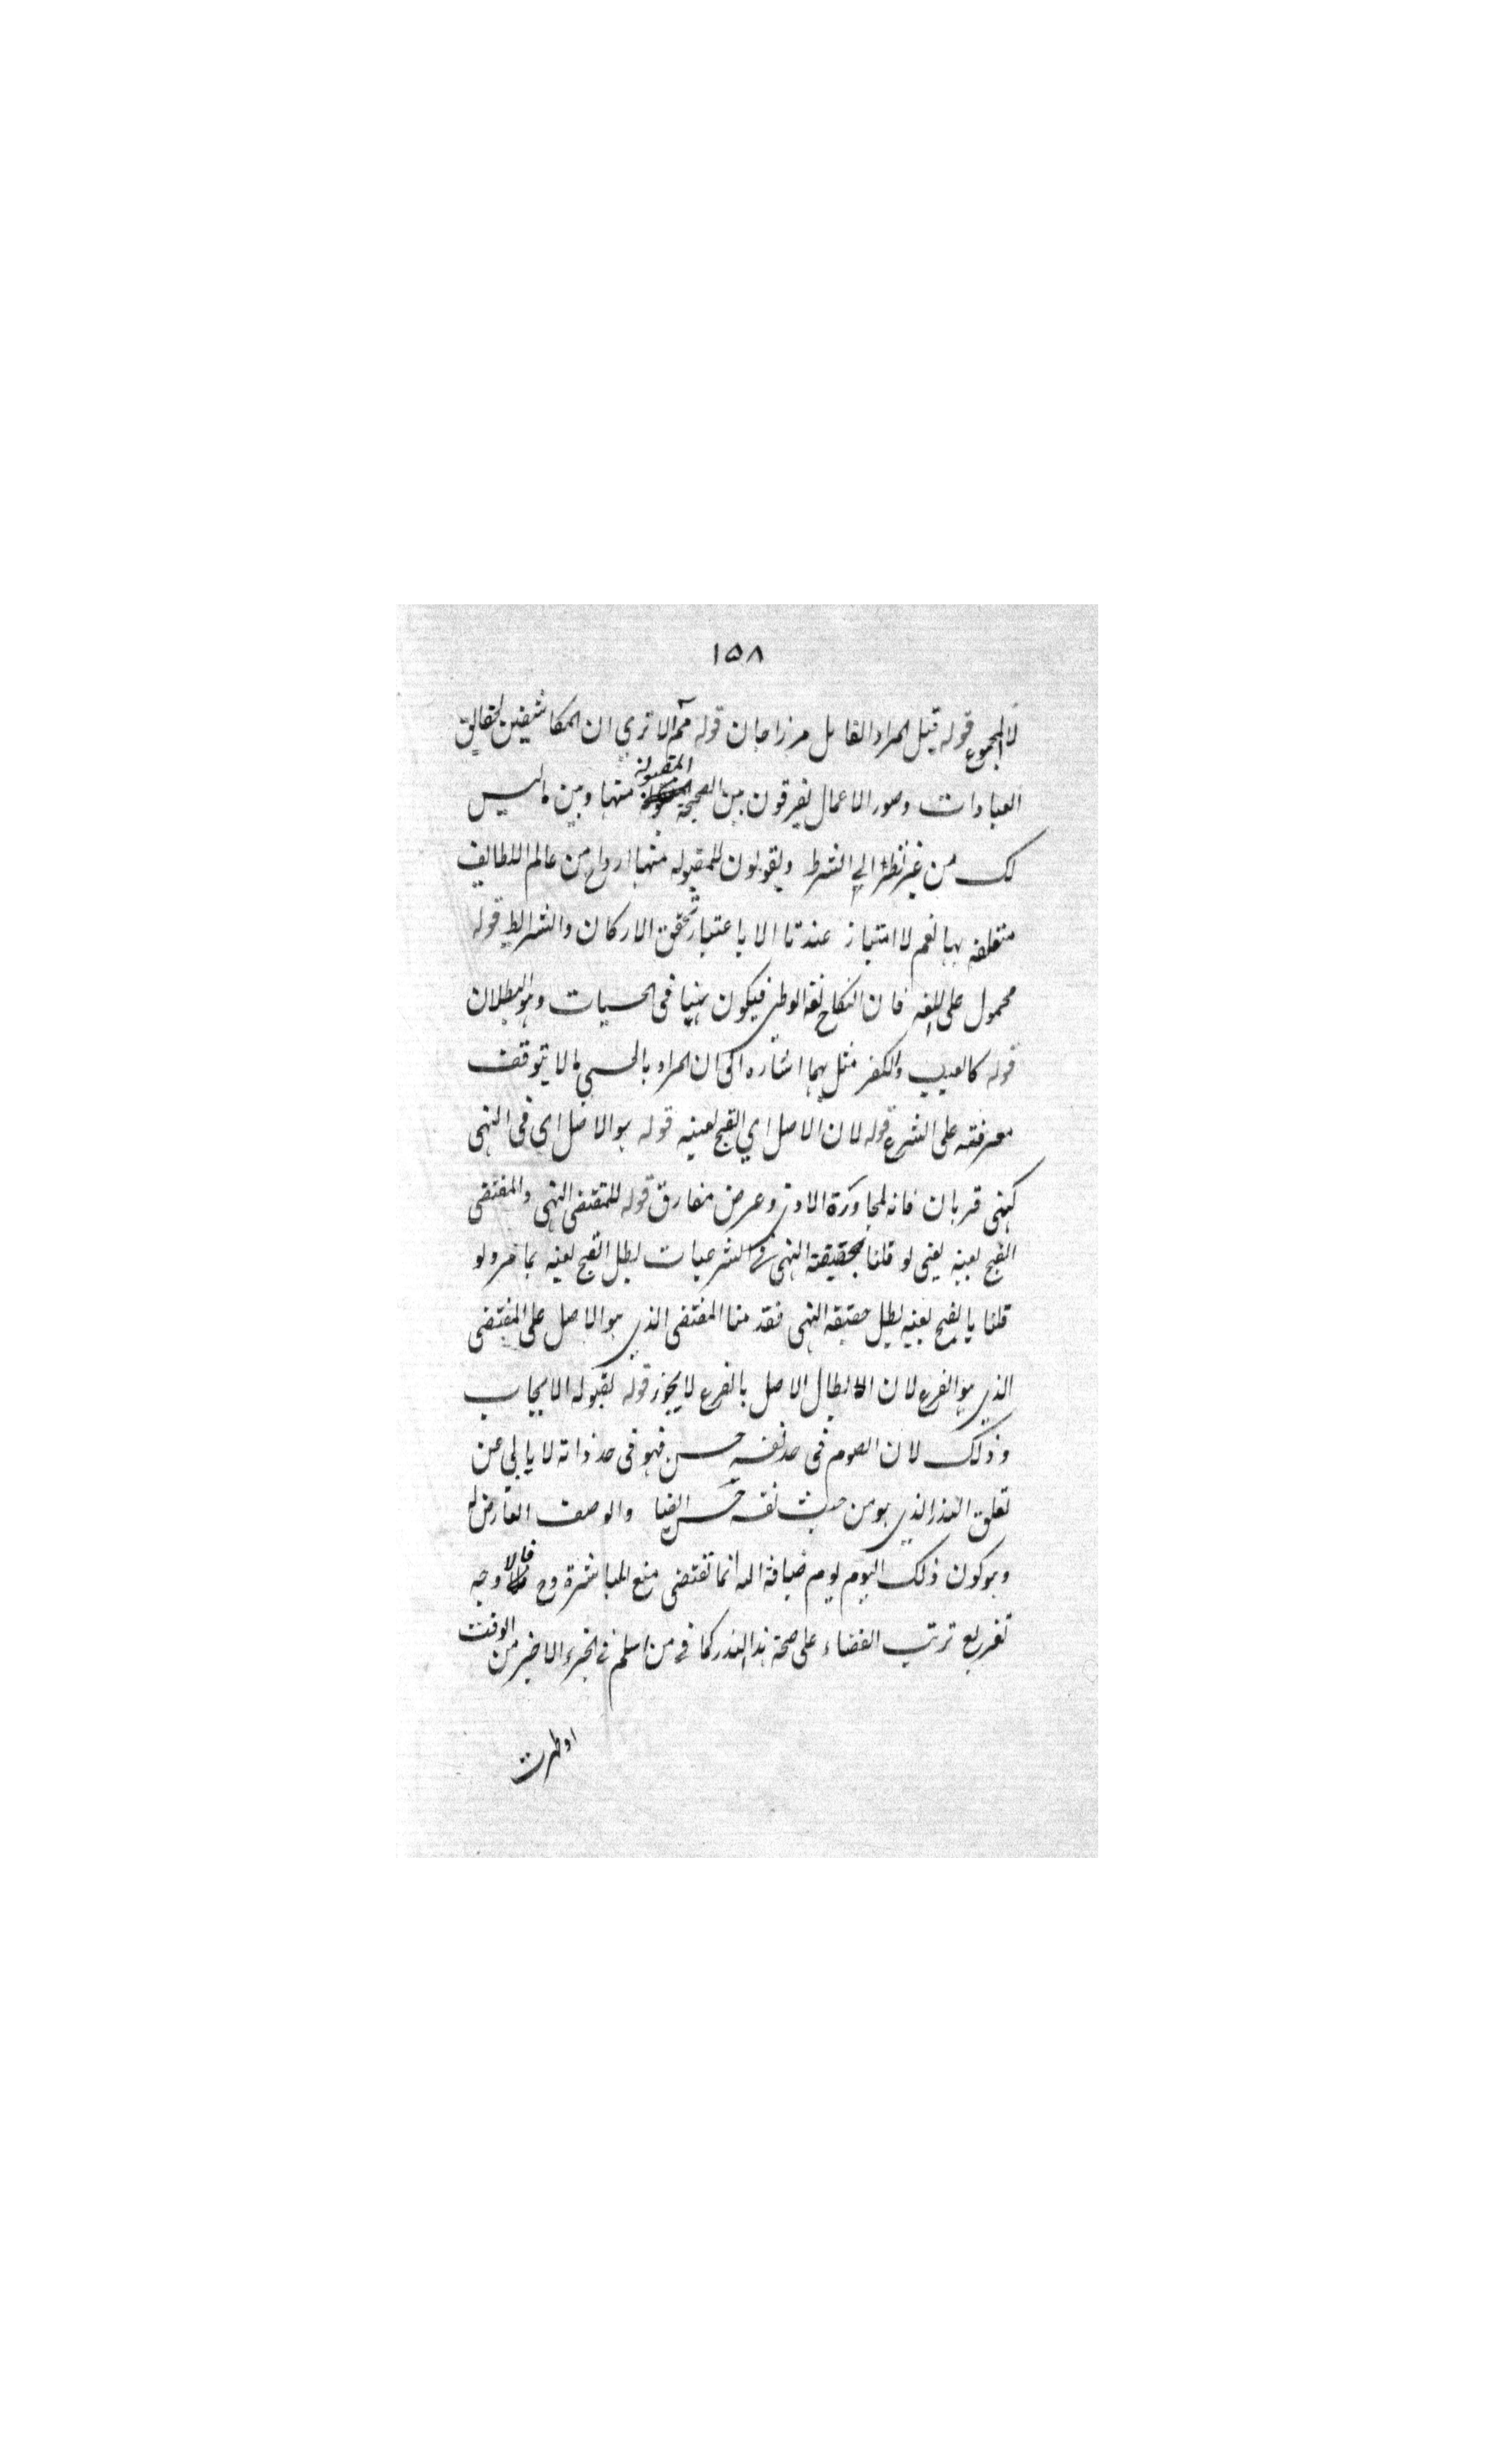 ١٥٨
لا المجموع قوله قيل المراد القايل مرزاجان قوله مم الا تري ان المكاشفين لحقايق
العبادات وصور الاعمال يفرقون بين الصحيحة المقبولة منها وبين ما ليس
كك من غير نظر الي الشرط ويقولون للمقبولة منها ارواح من عالم اللطايف
متعلقه بها نعم لا امتياز عندنا الا باعتبار تحقق الاركان والشرايط قوله
محمول علي اللغه فان النكاح لغة الوطي فيكون نهيا في الحسيات وهو البطلان
قوله كالعيب والكفر مثل بهما اشاره الي ان المراد بالحسي ما لا يتوقف
معرفته علي الشرع قوله لان الاصل اي القبح لعينه قوله هو الاصل اي في النهي
كنهي قربان فانه لمجاورة الاذي وعرض مفارق قوله للمقتضي النهي والمقتضي
القبح لعينه يعني لو قلنا بحقيقة النهي في الشرعيات لبطل القبح لعينه بما مر ولو
قلنا بالقبح لعينه لبطل حقيقه النهي فقدمنا المقتضي الذي هو الاصل علي المقتضي
الذي هو الفرع لان ابطال الاصل بالفرع لا يجوز قوله لقبوله الايجاب
وذلك لان الصوم في حد نفسه حسن فهو في حد ذاته لا يابي عن
تعلق النذر الذي هو من حيث نفسه حسن ايضا والوصف العارض له
وهو كون ذلك اليوم يوم ضيافة الله انما تقتضي منع المباشرة وح فالا وجه
تفريع ترتب القضاء علي صحة هذا النذر كما في من اسلم في الجزء الاخير من الوقت
او طهرت